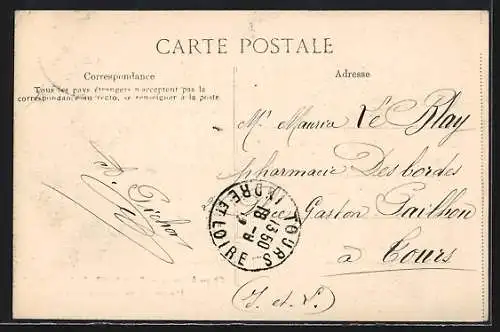 CARTE POSTALE
Correspondance
Tous les pays étrangers n'acceptent pas la
correspondance au recto, se renseigner à la poste.
Adresse
Mr Maurice Le Blay
pharmacie Desbordes
Gaston Pailhon
à Tours
(I. et L.)
TOURS
INDRE ET LOIRE
13 50